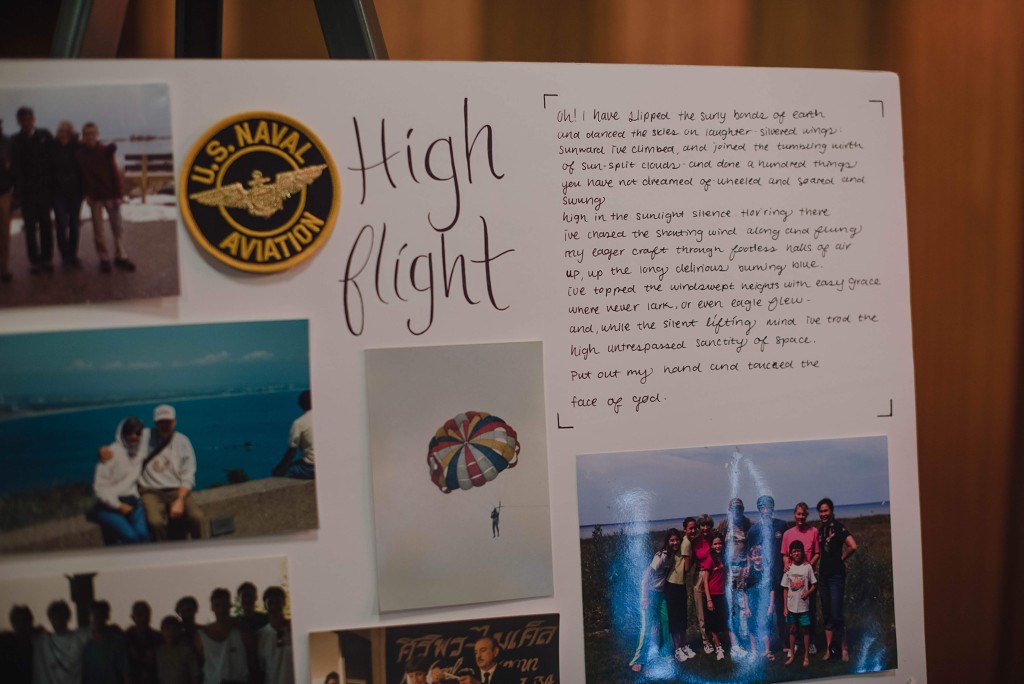 U.S. NAVAL
AVIATION
High
flight
Oh! I have slipped the surly bonds of earth
and danced the skies on laughter-silvered wings:
sunward i've climbed, and joined the tumbling mirth
of sun-split clouds - and done a hundred things
you have not dreamed of - wheeled and soared and
swung
high in the sunlight silence. Hov'ring there
i've chased the shouting wind along and flung
my eager craft through footless halls of air
up, up the long delirious burning blue.
i've topped the windswept heights with easy grace
where never lark, or even eagle flew -
and, while the silent lifting mind i've trod the
high untrespassed sanctity of space.
Put out my hand and touched the
face of god.
ศิริพร-ไมเคิล